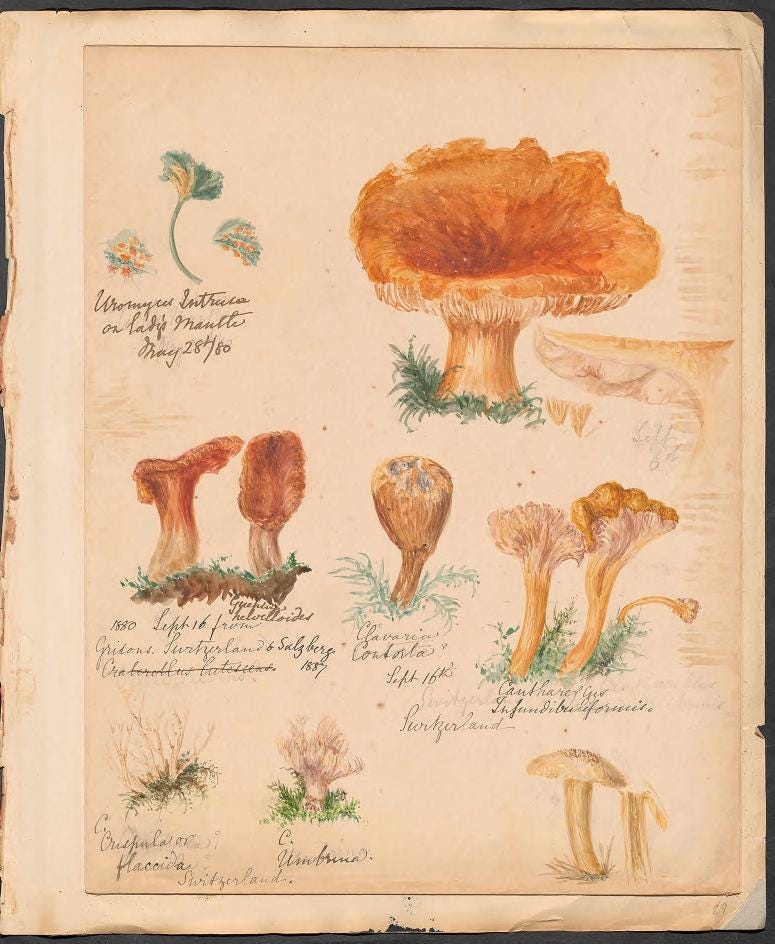 Uromyces Intrusa
on lady's Mantle
May 28th/80
Sept
6th
Guepinia
helvelloides
1880 Sept 16 from
Grisons. Switzerland & Salzberg
Craterellus lutescens. 1887
Clavaria
Contorta?
Sept 16th
Switzerland
Cantharellus
Infundibuliformis.
C.
Crispula or
flaccida
Switzerland.
C.
Umbrina.
29